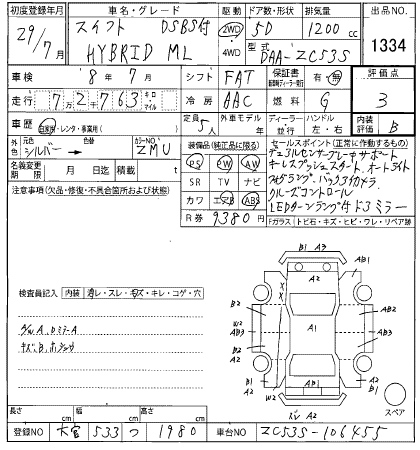 初度登録年月 車名・グレード 駆動 ドア数・形状 排気量 出品No.
29/7月 スイフト DSBS付 2WD 5D 1200cc 1334
HYBRID ML 4WD 型式 DAA-ZC53S
車検 8年7月 シフト FAT 保証書 有・無 評価点
走行 72763 キロ マイル 冷房 AAC 燃料 G 3
車歴 自家用・レンタ・事業用( ) 定員 5人 外車モデル 年 ディーラー 並行 ハンドル 左・右 内装評価 B
外色 元色 シルバー → 色 カラーNo. ZMU 装備品(純正品に限る) セールスポイント(正常に動作するもの)
名義変更期限 月 日迄 積載 t PS PW AW
SR TV ナビ
カワ エアB ABS
R券 9380円
デュアルセンサーブレーキサポート
キーレスプッシュスタート、オートライト
バックカメラ
クルーズコントロール
LEDターンランプ付ドアミラー
注意事項(欠品・修復・不具合箇所および状態)
Fガラス トビ石・キズ・ヒビ・ワレ・リペア跡
検査員記入 内装 汚レ・スレ・キズ・キレ・コゲ・穴
B1 A3
A2
AB1
B2
B2
W2
AB3
A1
AB3
W2
B2
A2
AB1
B1
A2
B1
A2
スペア
長さ cm 幅 cm 高さ cm
登録No 大宮 533 つ 1980 車台No ZC53S-106455